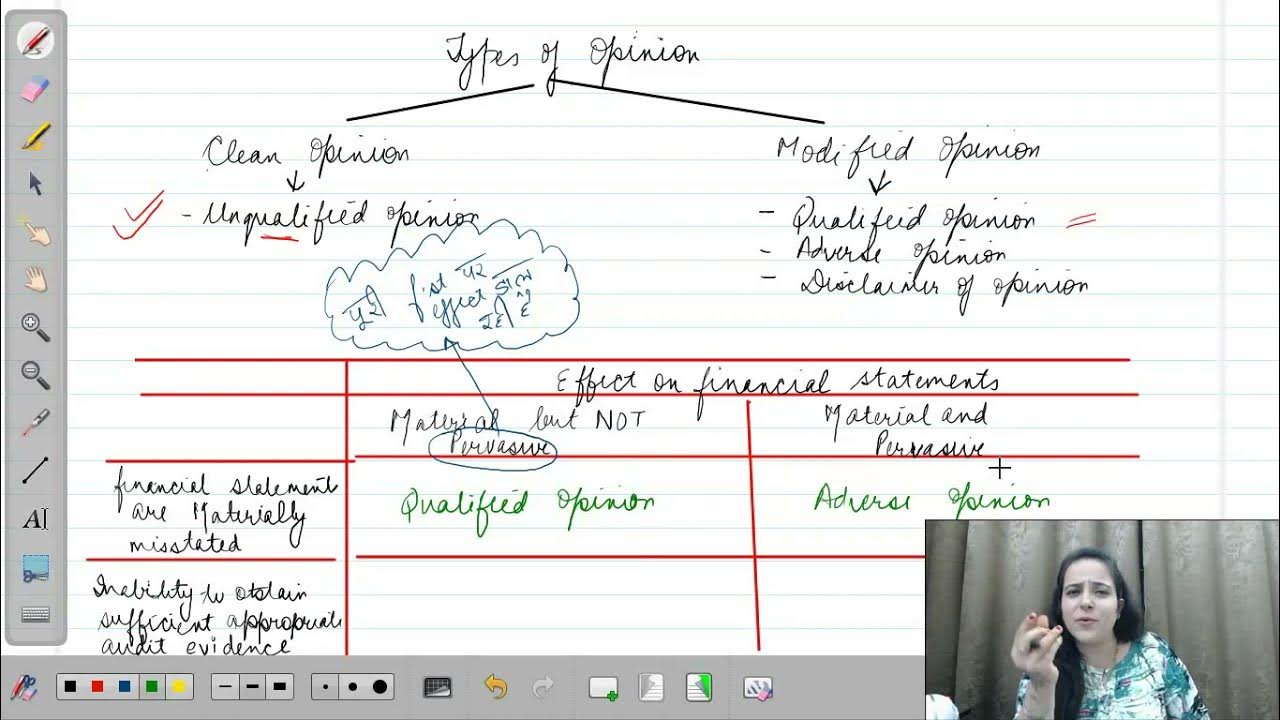 Types of Opinion
Clean Opinion
Modified Opinion
- Unqualified opinion
- Qualified opinion
- Adverse opinion
- Disclaimer of opinion
effect
Effect on financial statements
Material but NOT
Pervasive
Material and
Pervasive
financial statements
are Materially
misstated
Qualified Opinion
Adverse Opinion
Inability to obtain
sufficient appropriate
audit evidence
AI